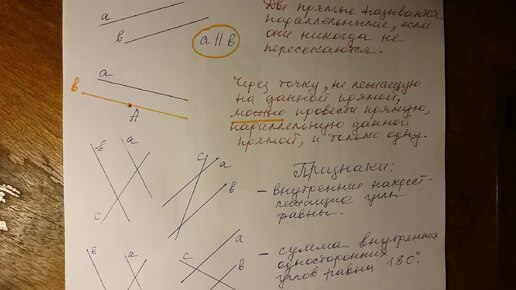 a
b
a ∥ b
Две прямые называются
параллельными, если
они никогда не
пересекаются.
a
b
A
Через точку, не лежащую
на данной прямой,
можно провести прямую,
параллельную данной
прямой, и только одну.
b a
c
c a
b
Признаки:
– внутренние накрест-
лежащие углы
равны.
b a
c a
b
– сумма внутренних
односторонних
углов равна 180°.